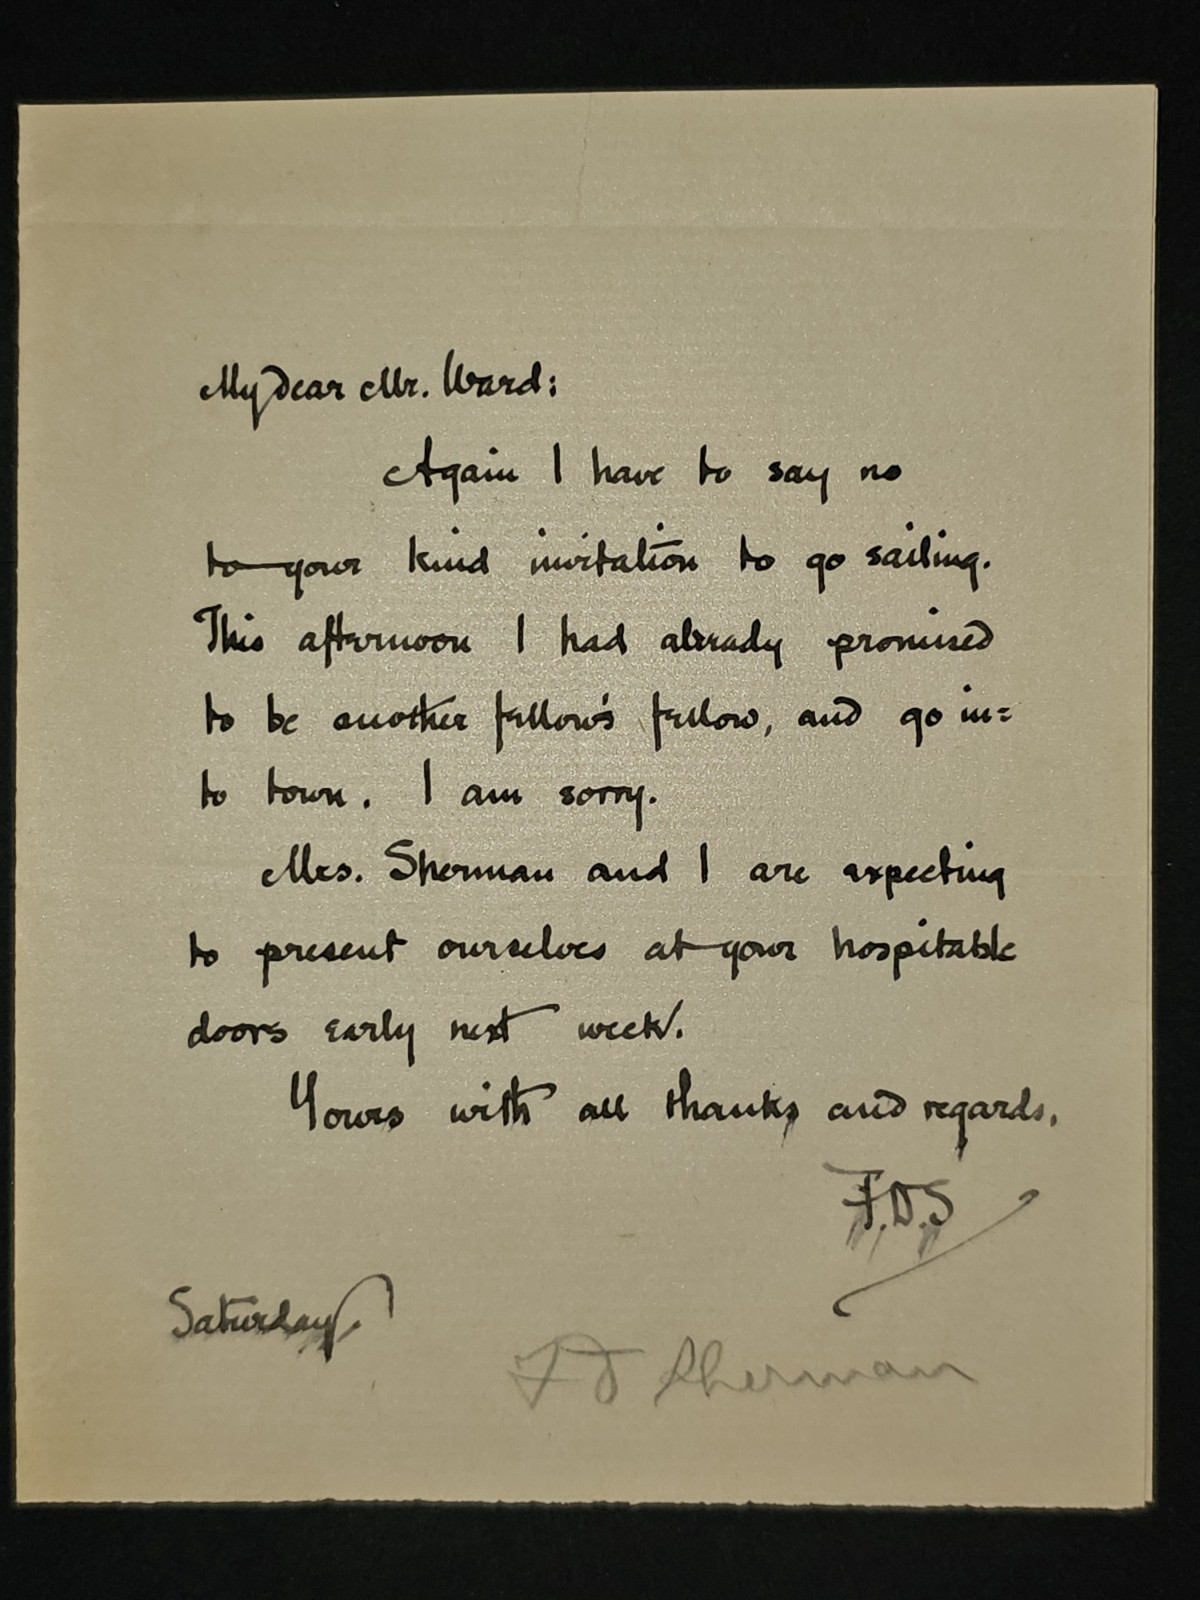 My dear Mr. Ward:
Again I have to say no
to your kind invitation to go sailing.
This afternoon I had already promised
to be another fellow's fellow, and go in=
to town. I am sorry.
Mrs. Sherman and I are expecting
to present ourselves at your hospitable
doors early next week.
Yours with all thanks and regards.
F.D.S
Saturday.
F D Sherman